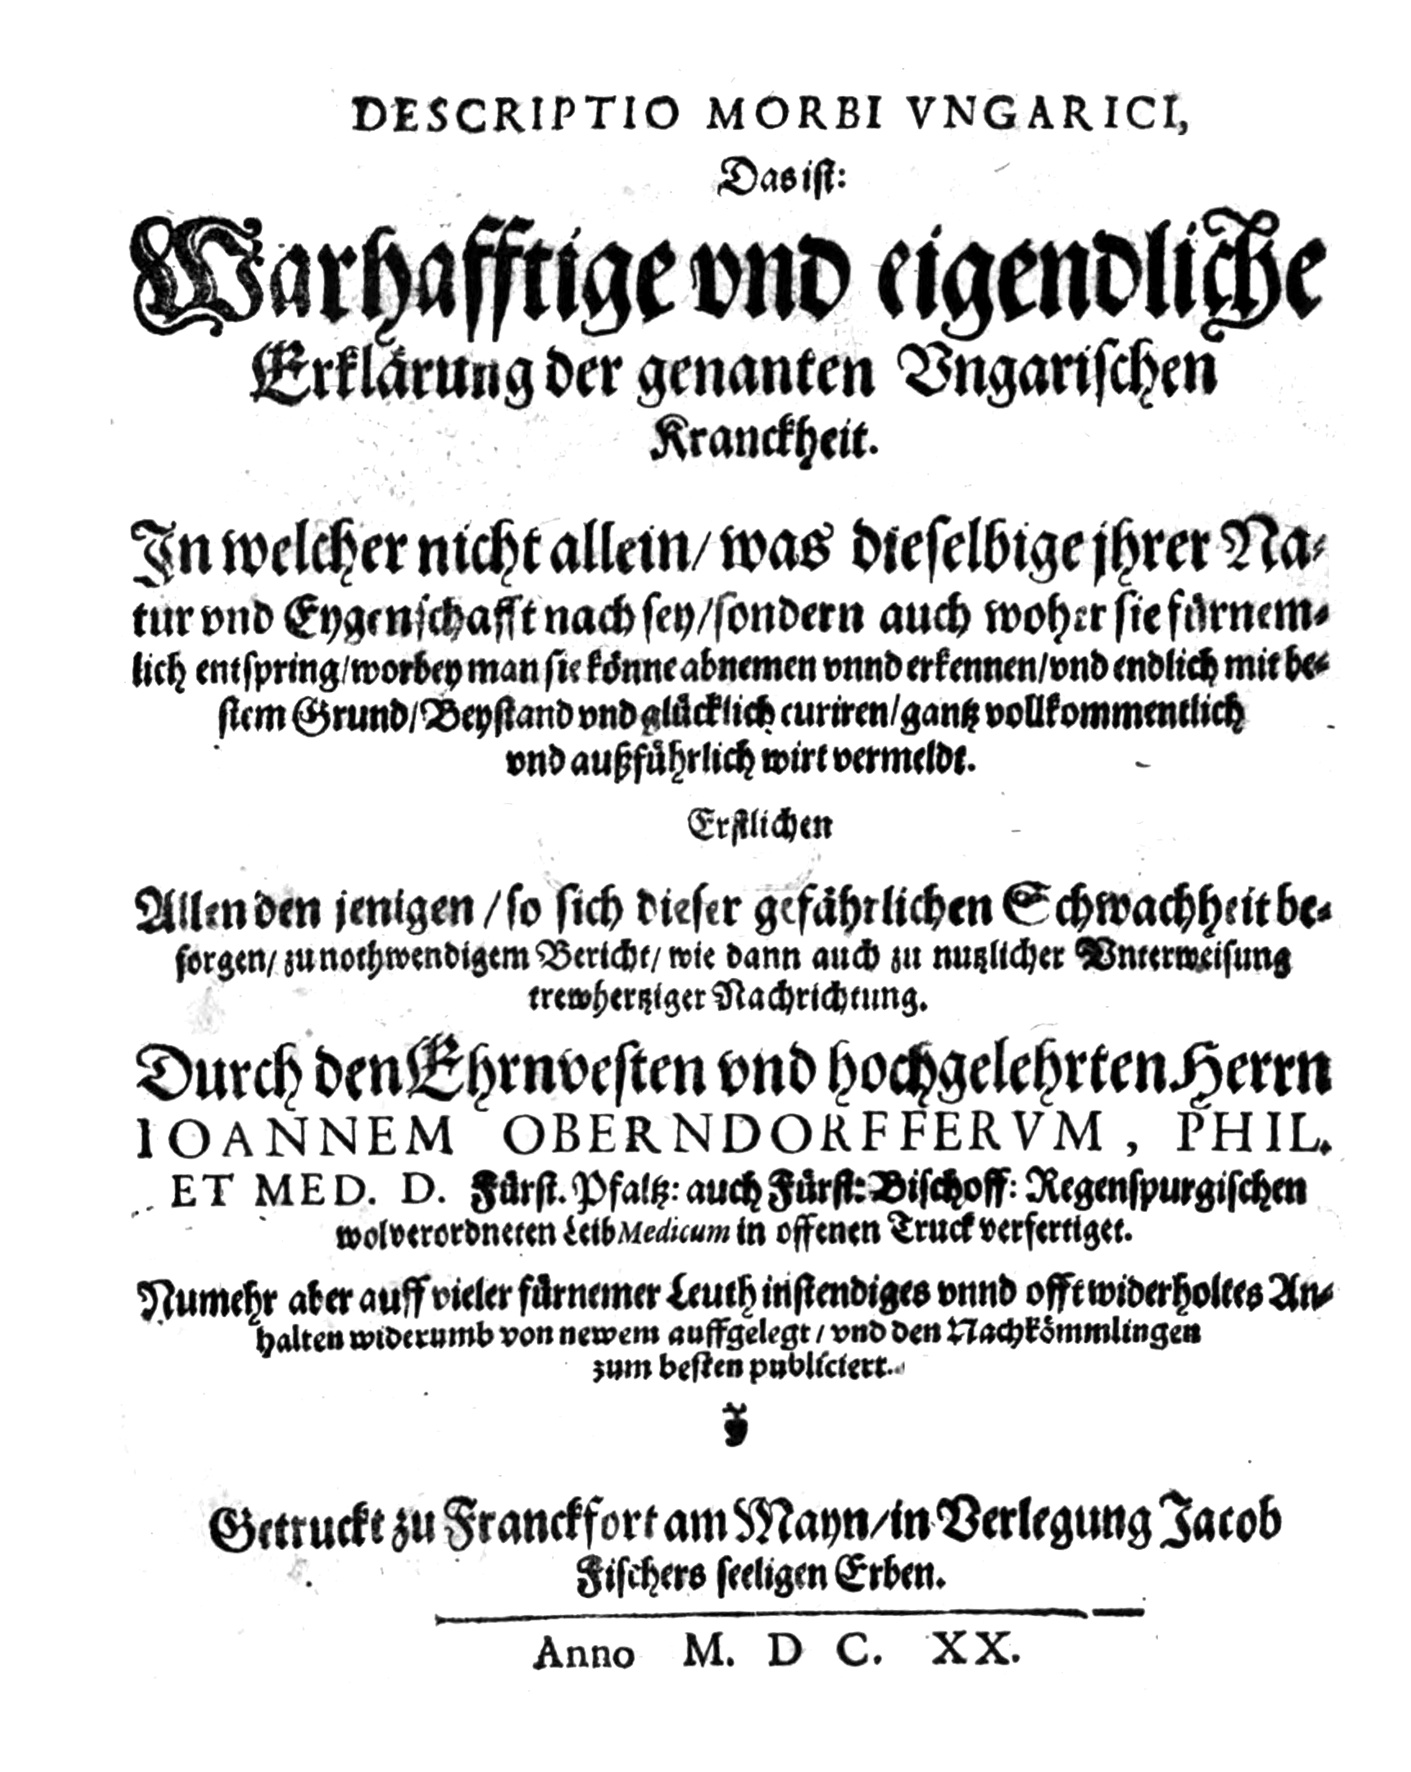 DESCRIPTIO MORBI VNGARICI,
Das ist:
Warhafftige vnd eigendliche
Erklärung der genanten Vngarischen
Kranckheit.
In welcher nicht allein/ was dieselbige jhrer Na-
tur vnd Eygenschafft nach sey/ sondern auch woher sie fürnem-
lich entspring/ worbey man sie könne abnemen vnnd erkennen/ vnd endlich mit be-
stem Grund/ Beystand vnd glücklich curiren/ gantz vollkommentlich
vnd außführlich wirt vermeldt.
Erstlichen
Allen den jenigen/ so sich dieser gefährlichen Schwachheit be-
sorgen/ zu nothwendigem Bericht/ wie dann auch zu nutzlicher Vnterweisung
trewhertziger Nachrichtung.
Durch den Ehrnvesten vnd hochgelehrten Herrn
IOANNEM OBERNDORFFERVM, PHIL.
ET MED. D. Fürst. Pfaltz: auch Fürst: Bischoff: Regenspurgischen
wolverordneten Leib Medicum in offenen Truck verfertiget.
Numehr aber auff vieler fürnemer Leuth instendiges vnnd offt widerholtes An-
halten widerumb von newem auffgelegt/ vnd den Nachkömmlingen
zum besten publiciert.
Getruckt zu Franckfort am Mayn/ in Verlegung Jacob
Fischers seeligen Erben.
Anno M. D C. XX.